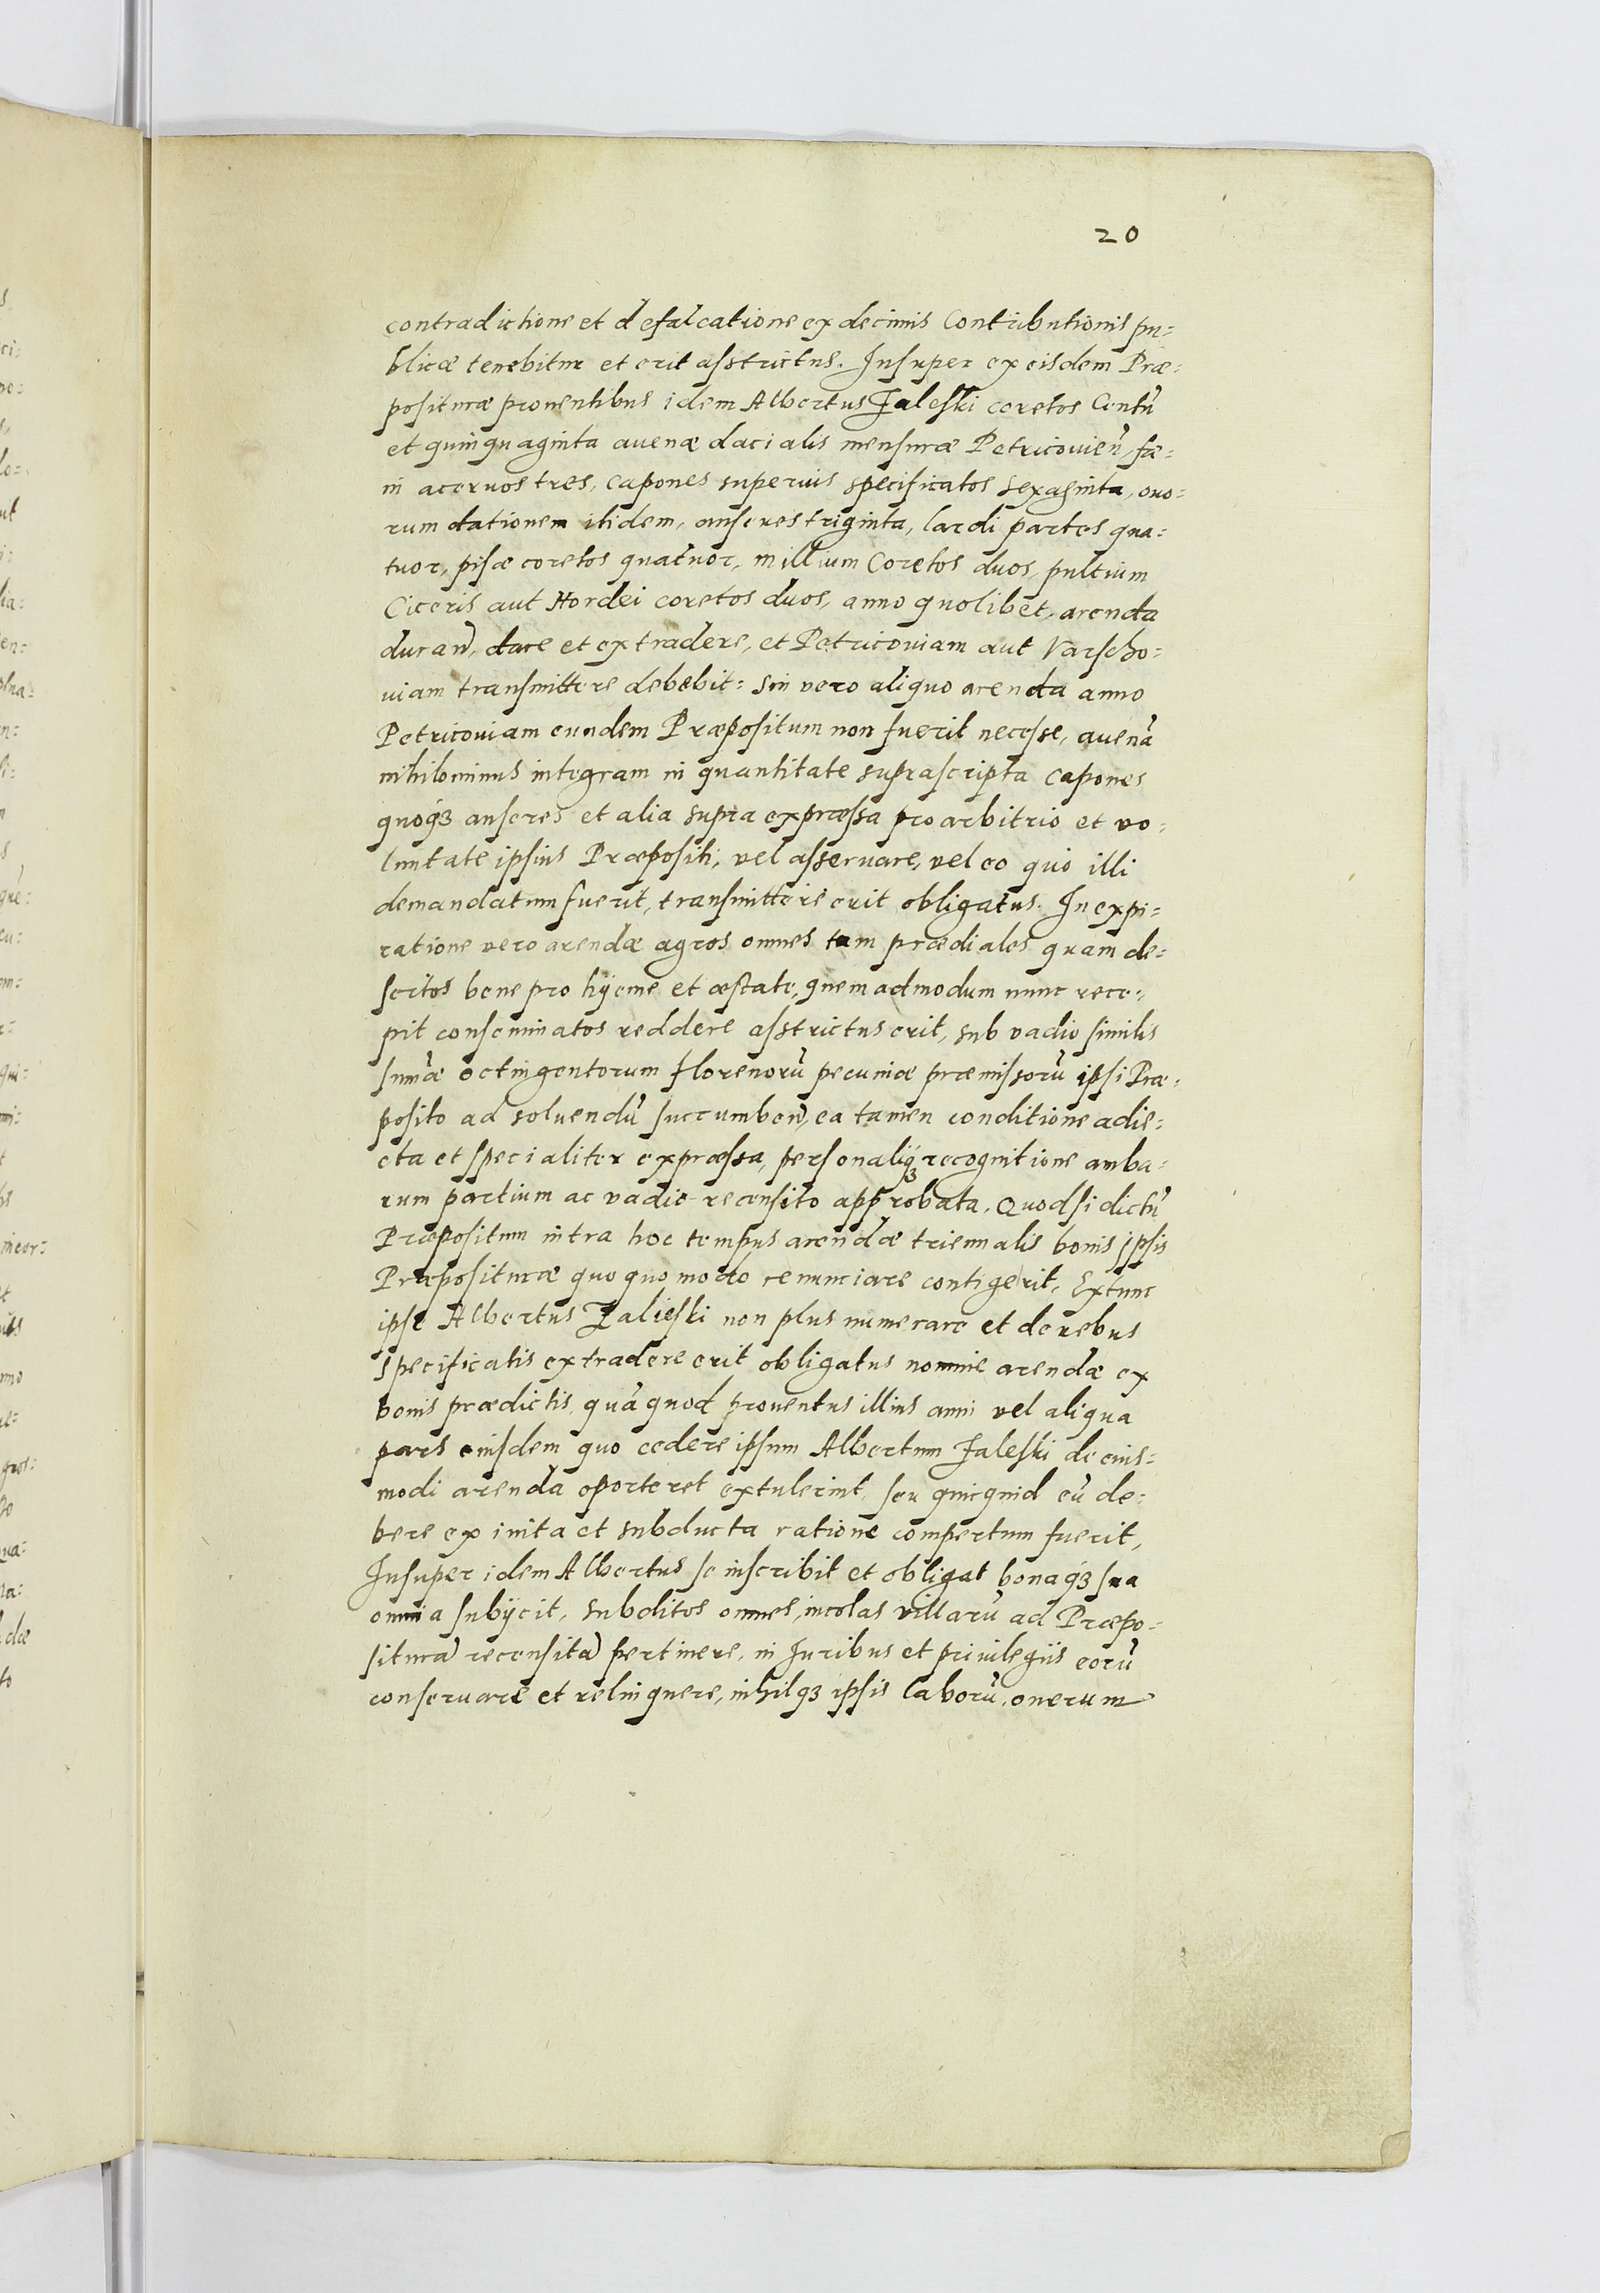 20
contradictione et defalcatione ex decimis Contributionis pu=
blicæ tenebitur et erit asstrictus. Insuper ex eisdem Præ=
posituræ prouentibus idem Albertus Zaleski coretos Centũ
et quinquaginta auenæ dacialis mensuræ Petricouień, fæ=
ni aceruos tres, capones superius specificatos sexaginta, ouo=
rum dationem itidem, anseres triginta, lardi partes qua=
tuor, pisæ coretos quatuor, millium Coretos duos, pultium
Ciceris aut Hordei coretos duos, anno quolibet, arenda
duran̄, dare et extradere, et Petricouiam aut Varscho=
uiam transmittere debebit: sin vero aliquo arenda anno
Petricouiam eundem Præpositum non fuerit necesse, auenã
nihilominus integram in quantitate suprascripta capones
quoqȝ anseres et alia supra expræssa pro arbitrio et vo=
luntate ipsius Præpositi, vel asseruare, vel eo quo illi
demandatum fuerit, transmittere erit obligatus. In expi=
ratione vero arendæ agros omnes tam prædiales quam de=
sertos bene pro hyeme et æstate, quemadmodum nunc rece=
pit conseminatos reddere asstrictus erit, sub vadio similis
sum̃æ octingentorum florenorũ pecuniæ præmissorũ ipsi Præ=
posito ad soluendũ succumben̄, ea tamen conditione adie=
cta et specialiter expræssa, personaliqȝ recognitione amba=
rum partium ac vadio recensito approbata. Quod si dictũ
Præpositum intra hoc tempus arendæ triennalis bonis ipsis
Præposituræ quoquo modo renunciare contigerit, Extunc
ipse Albertus Zalieski non plus numerare et de rebus
specificatis extradere erit obligatus nomine arendæ ex
bonis prædictis, quã quod prouentus illius anni vel aliqua
pars eiusdem quo cedere ipsum Albertum Zaleski de eius=
modi arenda oporteret extulerint, seu quicquid eũ de=
bere ex inita et subducta ratione compertum fuerit,
Insuper idem Albertus se inscribit et obligat bonaqȝ sua
omnia subijcit, subditos omnes, incolas villarũ ad Præpo=
siturã recensitã pertinere, in Iuribus et priuilegiis eorũ
conseruare et relinquere, nihilqȝ ipsis laborũ, onerum